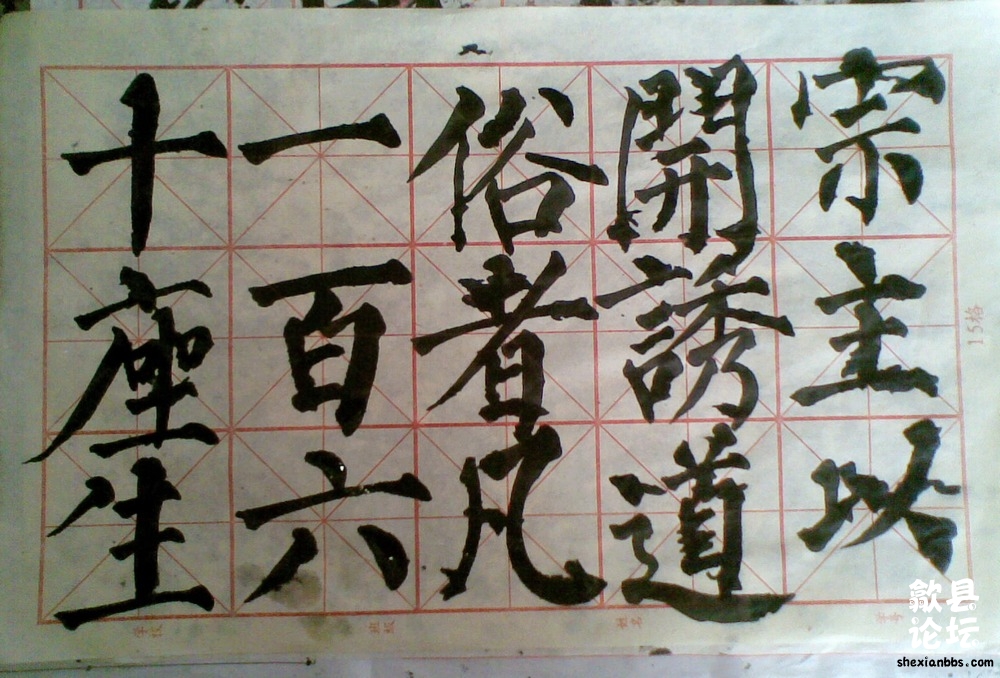 宗主以
開誘道
俗者凡
一百六
十座生
15格
学号
姓名
班级
学校
歙县
论坛
shexianbbs.com